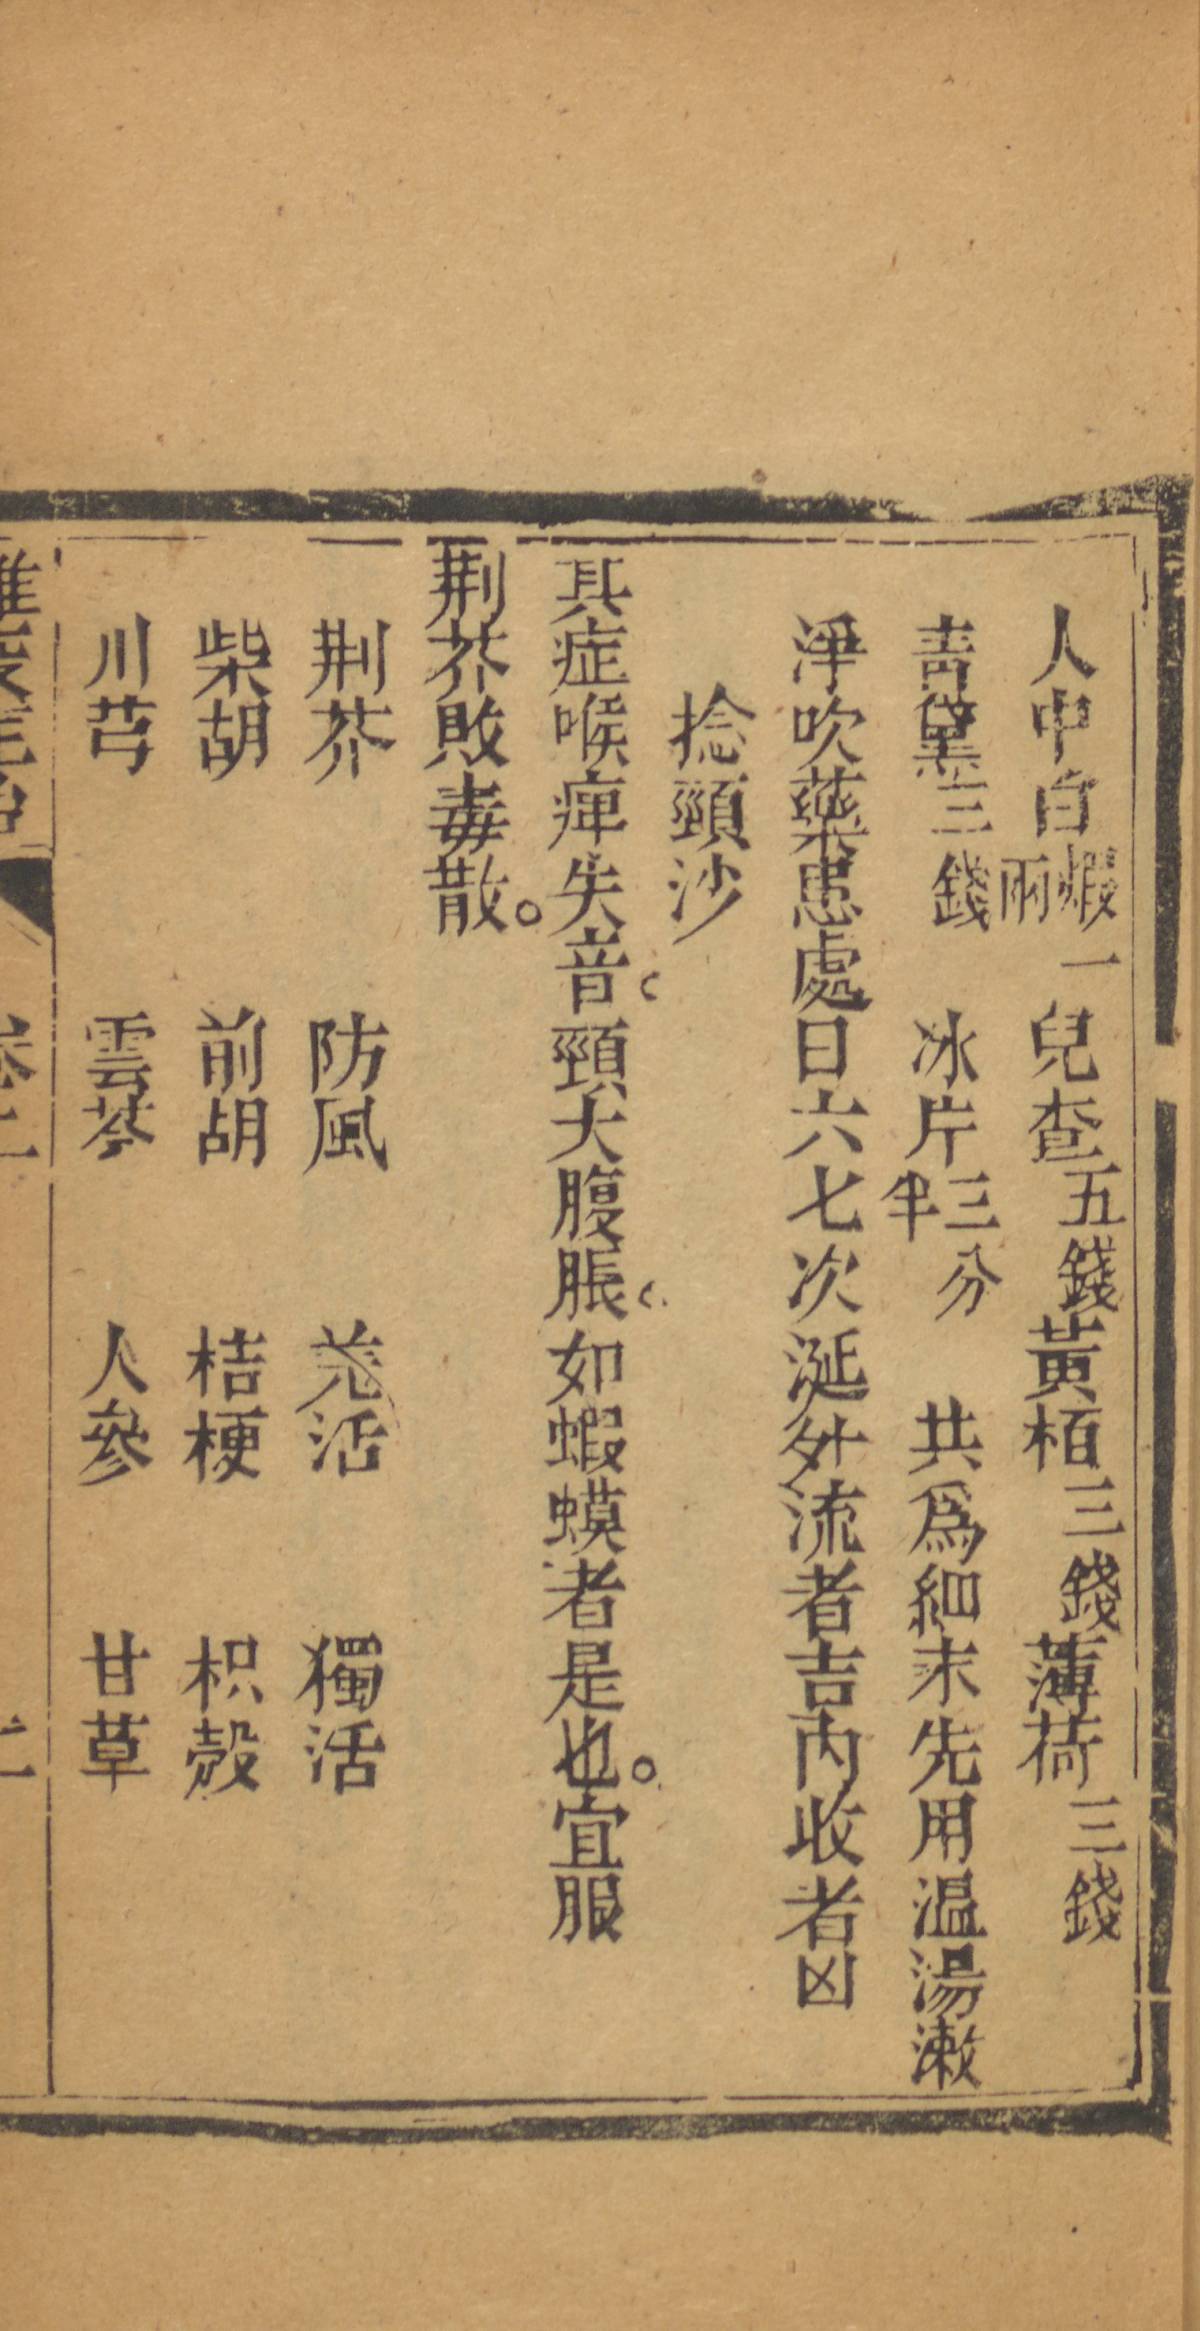 人中白煆一兩 兒查五錢 黃栢三錢 薄荷三錢
青黛三錢 冰片三分半 共爲細末先用溫湯漱
淨吹藥患處日六七次涎外流者吉內收者凶
捻頸沙
其症喉痺失音頸大腹脹如蝦蟆者是也。宜服
荆芥敗毒散。
荆芥 防風 羗活 獨活
柴胡 前胡 桔梗 枳殼
川芎 雲苓 人參 甘草